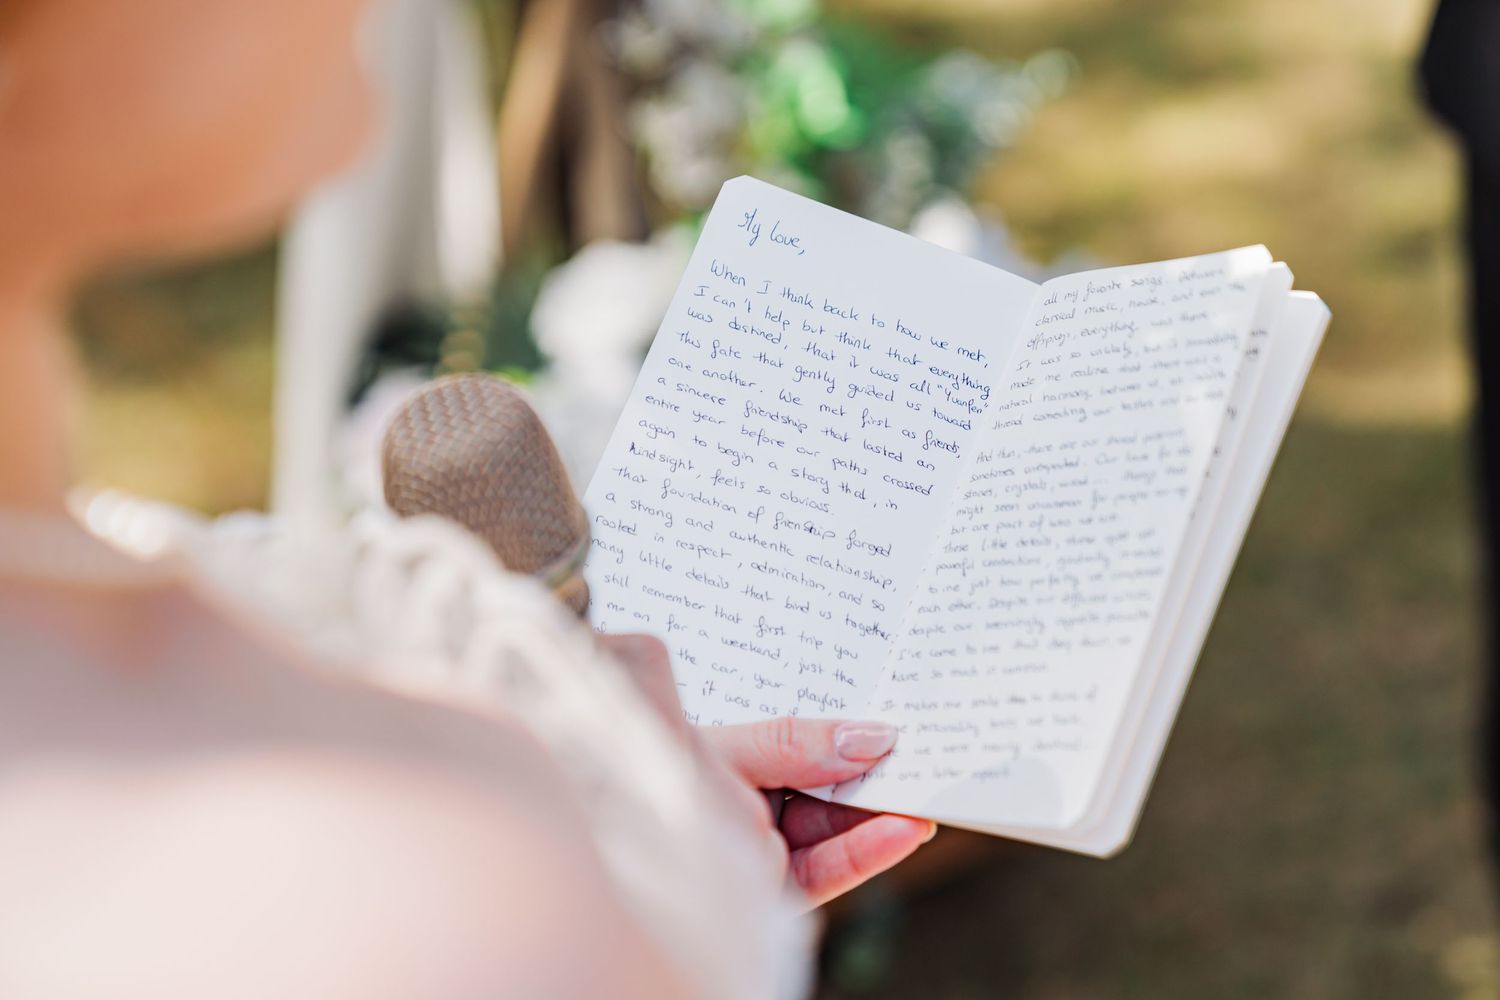 My love,
When I think back to how we met,
I can't help but think that everything
was destined, that it was all "Yuanfen"
this fate that gently guided us toward
one another. We met first as friends,
a sincere friendship that lasted an
entire year before our paths crossed
again to begin a story that, in
hindsight, feels so obvious.
that foundation of frienship forged
a strong and authentic relationship,
rooted in respect, admiration, and so
many little details that bind us together.
still remember that first trip you
me on for a weekend, just the
the car, your playlist
- it was as if
my
all my favorite songs. Between
classical music, house, and even the
offspring, everything was there.
It was so unlikely, but it immediately
made me realize that there was a
natural harmony, between us, an
thread connecting our tastes and our
And then, there are our shared passions
sometimes unexpected. Our love for the
stones, crystals, wood... things that
might seem uncommon for people
but are part of who we are.
these little details, these quiet yet
powerful connections, gradually revealed
to me just how perfectly we complement
each other. Despite our different
despite our seemingly opposite
I've come to see that they
have so much in common.
It makes me smile to think of
personality tests we took.
we were nearly identical.
just one letter apart.